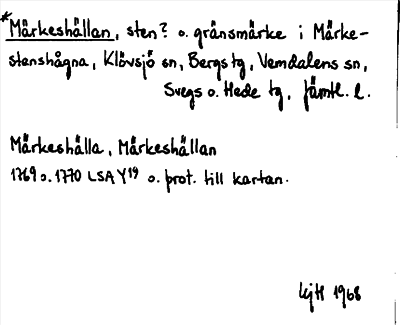 *Märkeshällan, sten? o. gränsmärke i Märke-
stenshågna, Klövsjö sn, Bergs tg, Vemdalens sn,
Svegs o. Hede tg, Jämtl. l.
Märkeshälla, Märkeshällan
1769 o. 1770 LSA Y19 o. prot. till kartan.
1968